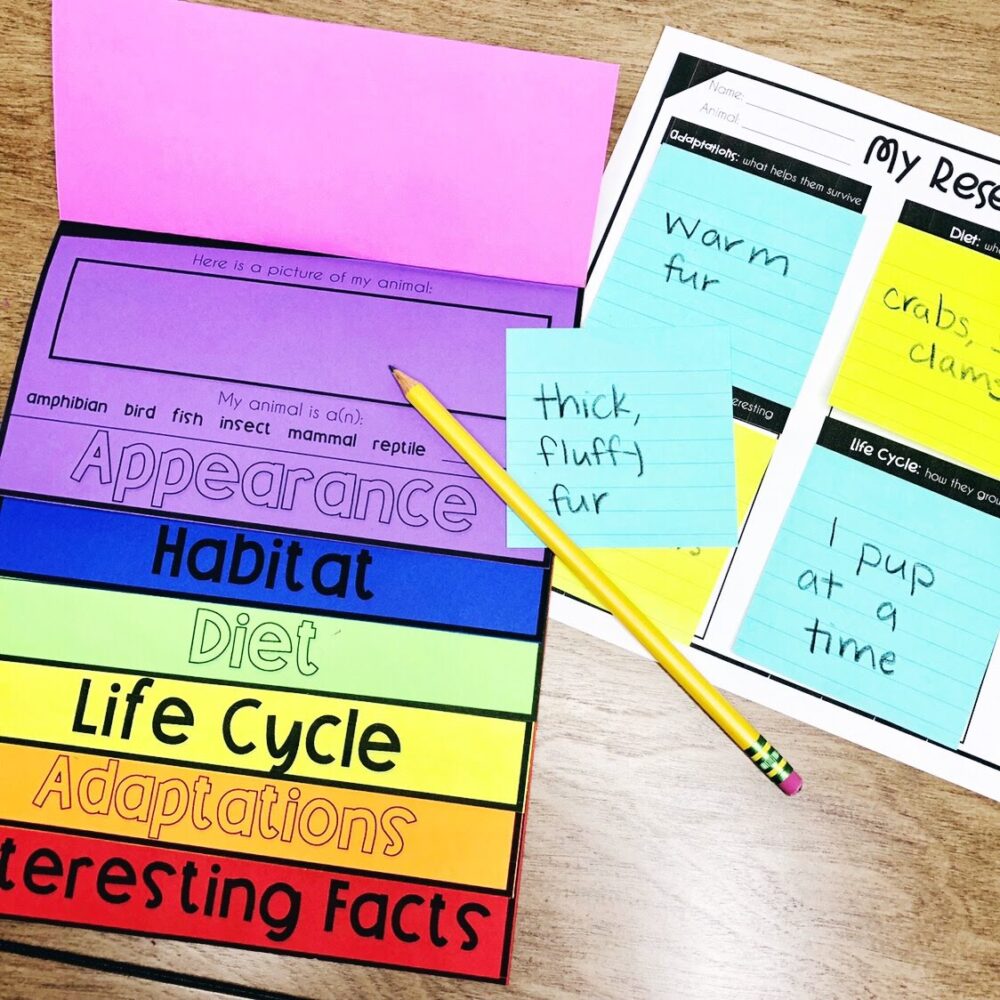 Here is a picture of my animal:
My animal is a(n):
amphibian bird fish insect mammal reptile
Appearance
Habitat
Diet
Life Cycle
Adaptations
teresting Facts
Name:
Animal:
My Rese
Adaptations: what helps them survive
warm
fur
thick,
fluffy
fur
eresting
Diet: wh
crabs,
clams
Life Cycle: how they grow
1 pup
at a
time